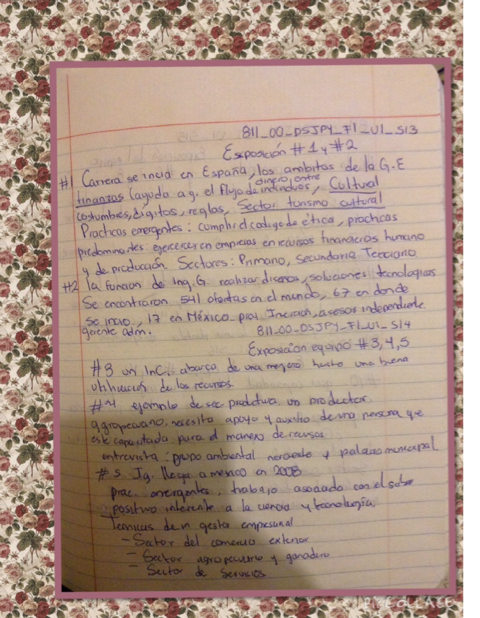 811_00_DSJPY_F1_U1_S13
Exposición #1 y #2
#1 Carrera se incia en España, los ambitos de la G.E
finanzas (ayuda a g. el flujo de dinero, entre individuos, Cultural
costumbres, digitos, reglas, Sector turismo cultural
Practicas emergentes: cumplir el codigo de etica, practicas
predominantes ejercerer en empresas en recursos financieros humano
y de producción. Sectores: Primario, Secundario Teorciario
#2 la funcion de Ing. G. realizar diseños, soluciones tecnologicas
Se encontraron 541 ofertas en el mundo, 67 en donde
se inicio, 17 en México prof. Inicion, asesor independiente
gerente adm.
811_00_DSJPY_F1_U1_S14
Exposición equipo #3,4,5
#3 un InC. abarca de una mejora hasta una buena
utilización de los recursos.
#4 ejemplo de sec prodctiva un productor.
agropecuario, necesita apoyo y auxilio de una persona que
este capacitada para el manejo de recursos
entrevista: grupo ambiental noroeste y palacio municipal
#5 Ig. llega a mexico en 2008
prac. emergentes, trabajo asociado con el
positivo inherente a la ciencia y tecnología,
Tecnicas de in gesta empresarial
- Sector del comercio exterior
- Sector agropecuario y ganadero
- Sector de Servicios